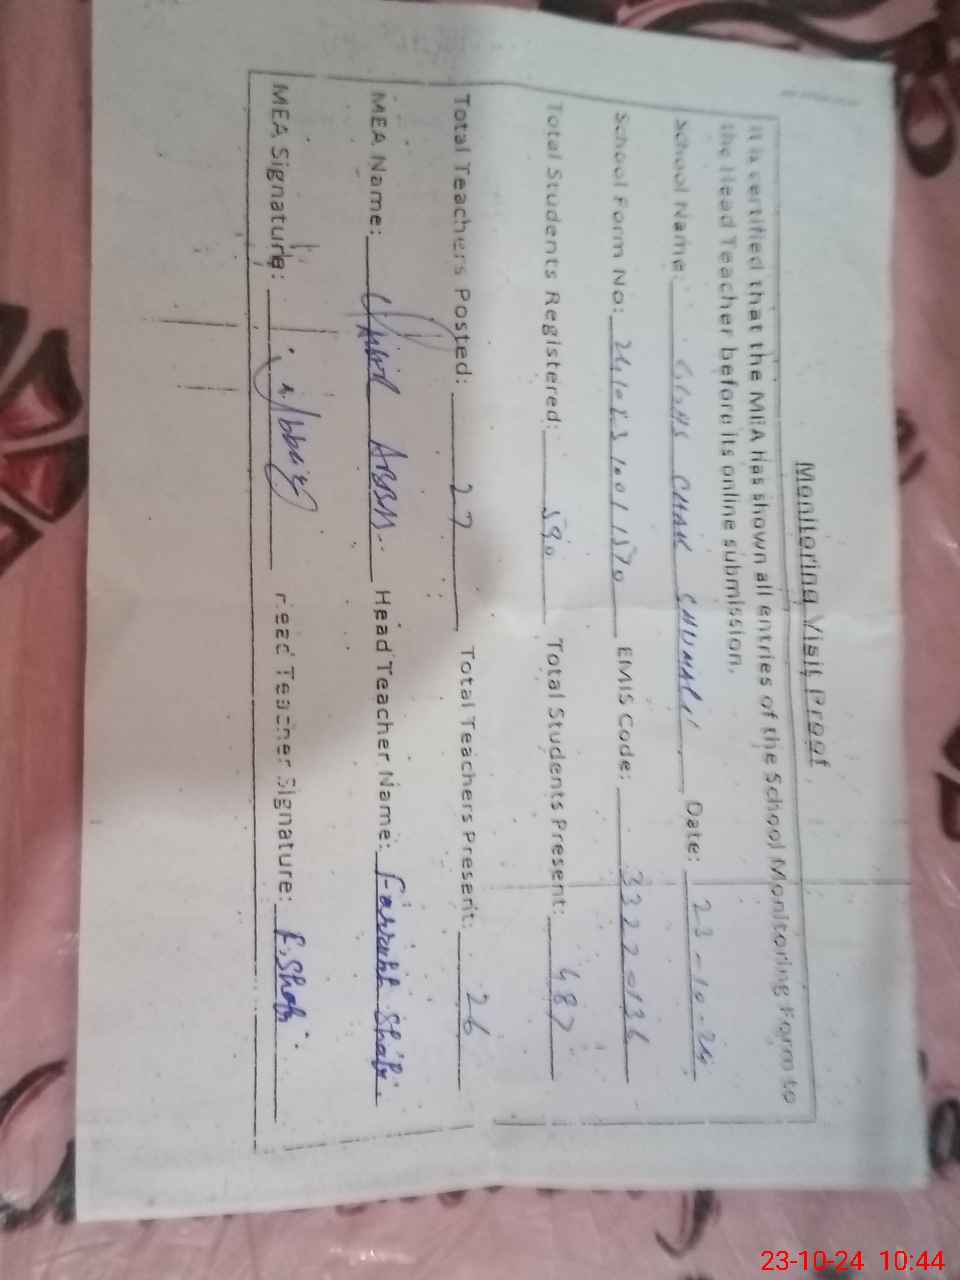 Monitoring Visit Proof
It is certified that the MEA has shown all entries of the School Monitoring Form to
the Head Teacher before its online submission.
School Name: CHAK Date: 23-10-24
School Form No: EMIS Code: 33220136
Total Students Registered: 590 Total Students Present: 487
Total Teachers Posted: 27 Total Teachers Present: 26
MEA Name: Head Teacher Name: Farrukh Shafi.
MEA Signature: Head Teacher Signature: F.Shafi
23-10-24 10:44